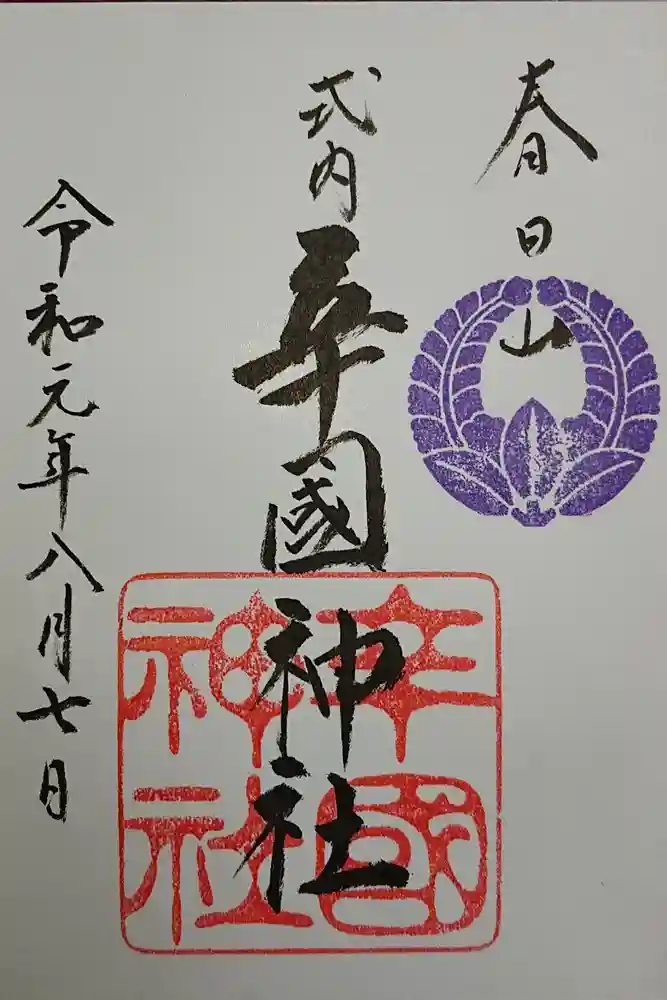 春日山
式内 辛國神社
辛國
神社
令和元年八月七日